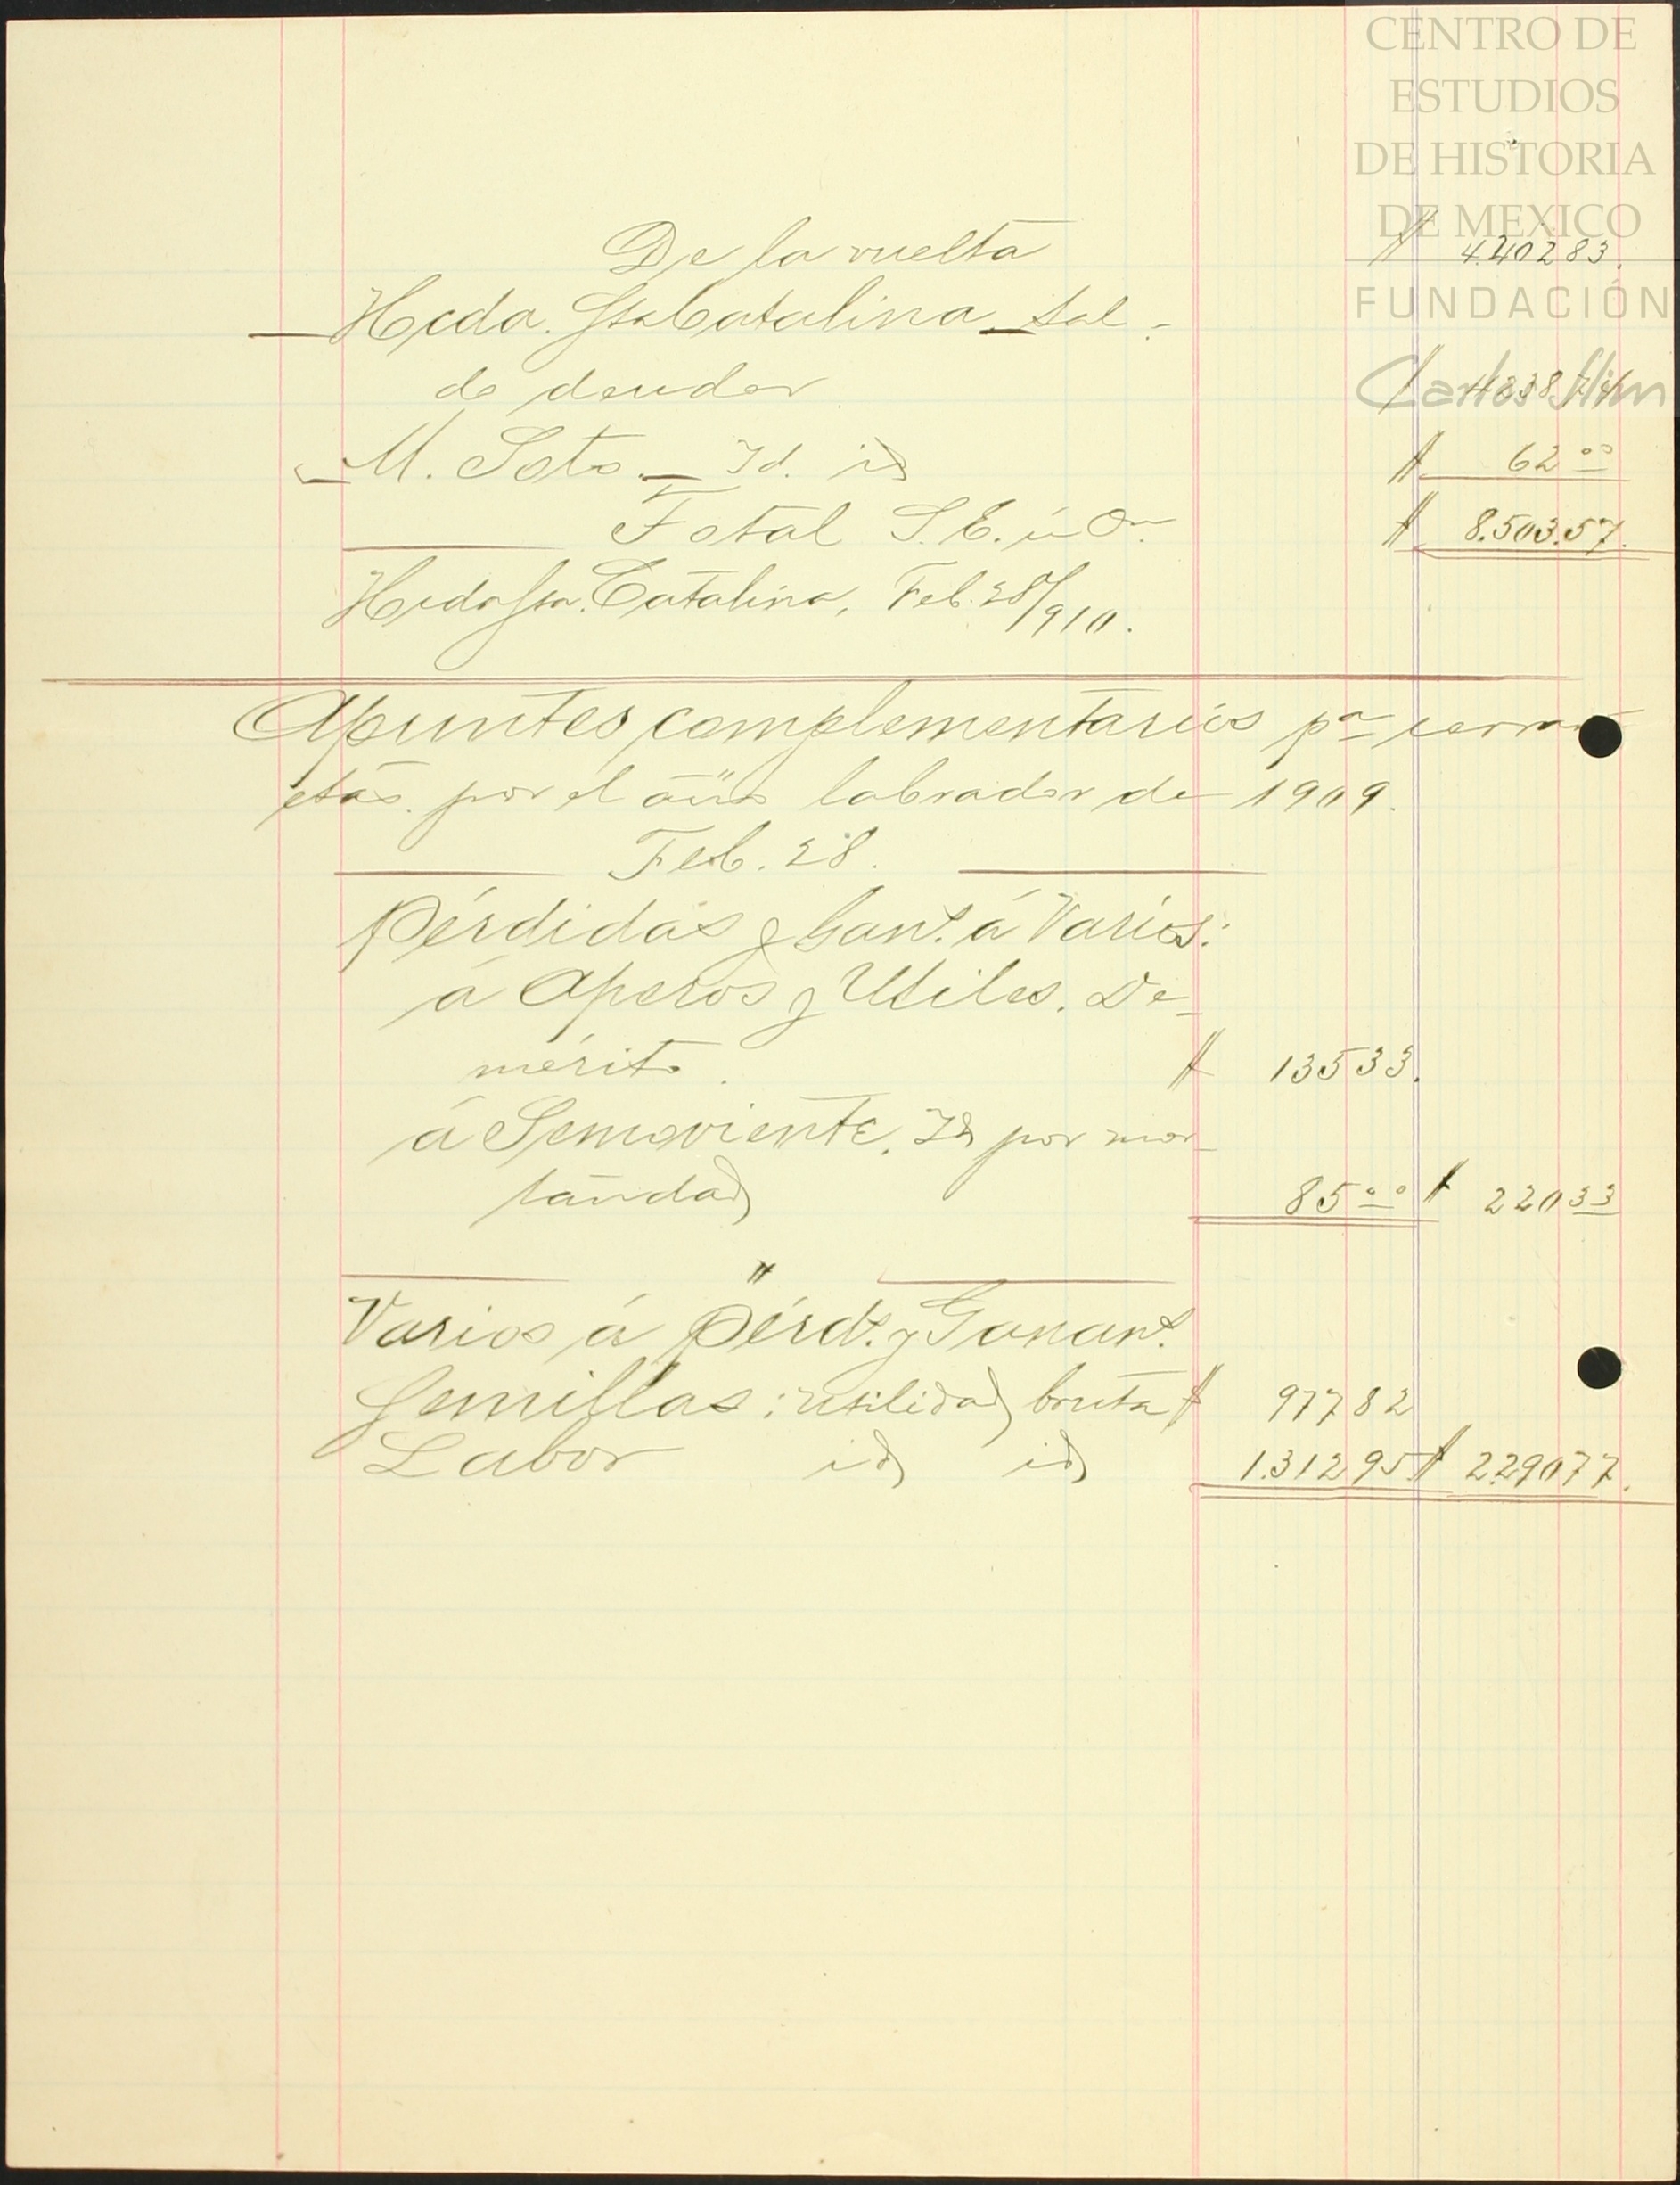 CENTRO DE
ESTUDIOS
DE HISTORIA
DE MEXICO
FUNDACIÓN
Carlos Slim
De la vuelta $ 4.402 83.
Hcda. Sta Catalina_ Sal-
do deudor $ 4238.74
M. Soto._ Id. id $ 62 00
Total S. E. ú On. $ 8.503.57.
Hcda Sta. Catalina, Feb. 28/910.
Apuntes complementarios pa cerrar
ctas. por el año labrador de 1909.
Feb. 28.
Pérdidas y Gans. á Varios:
á Aperos y Utiles. De-
mérito. $ 135 33.
á Semoviente, Id por mor-
tandad 85 00 $ 220 33
"
Varios á Pérds. y Ganans.
Semillas: utilidad bruta $ 977 82
Labor id id 1.312 95 $ 2.290 77.